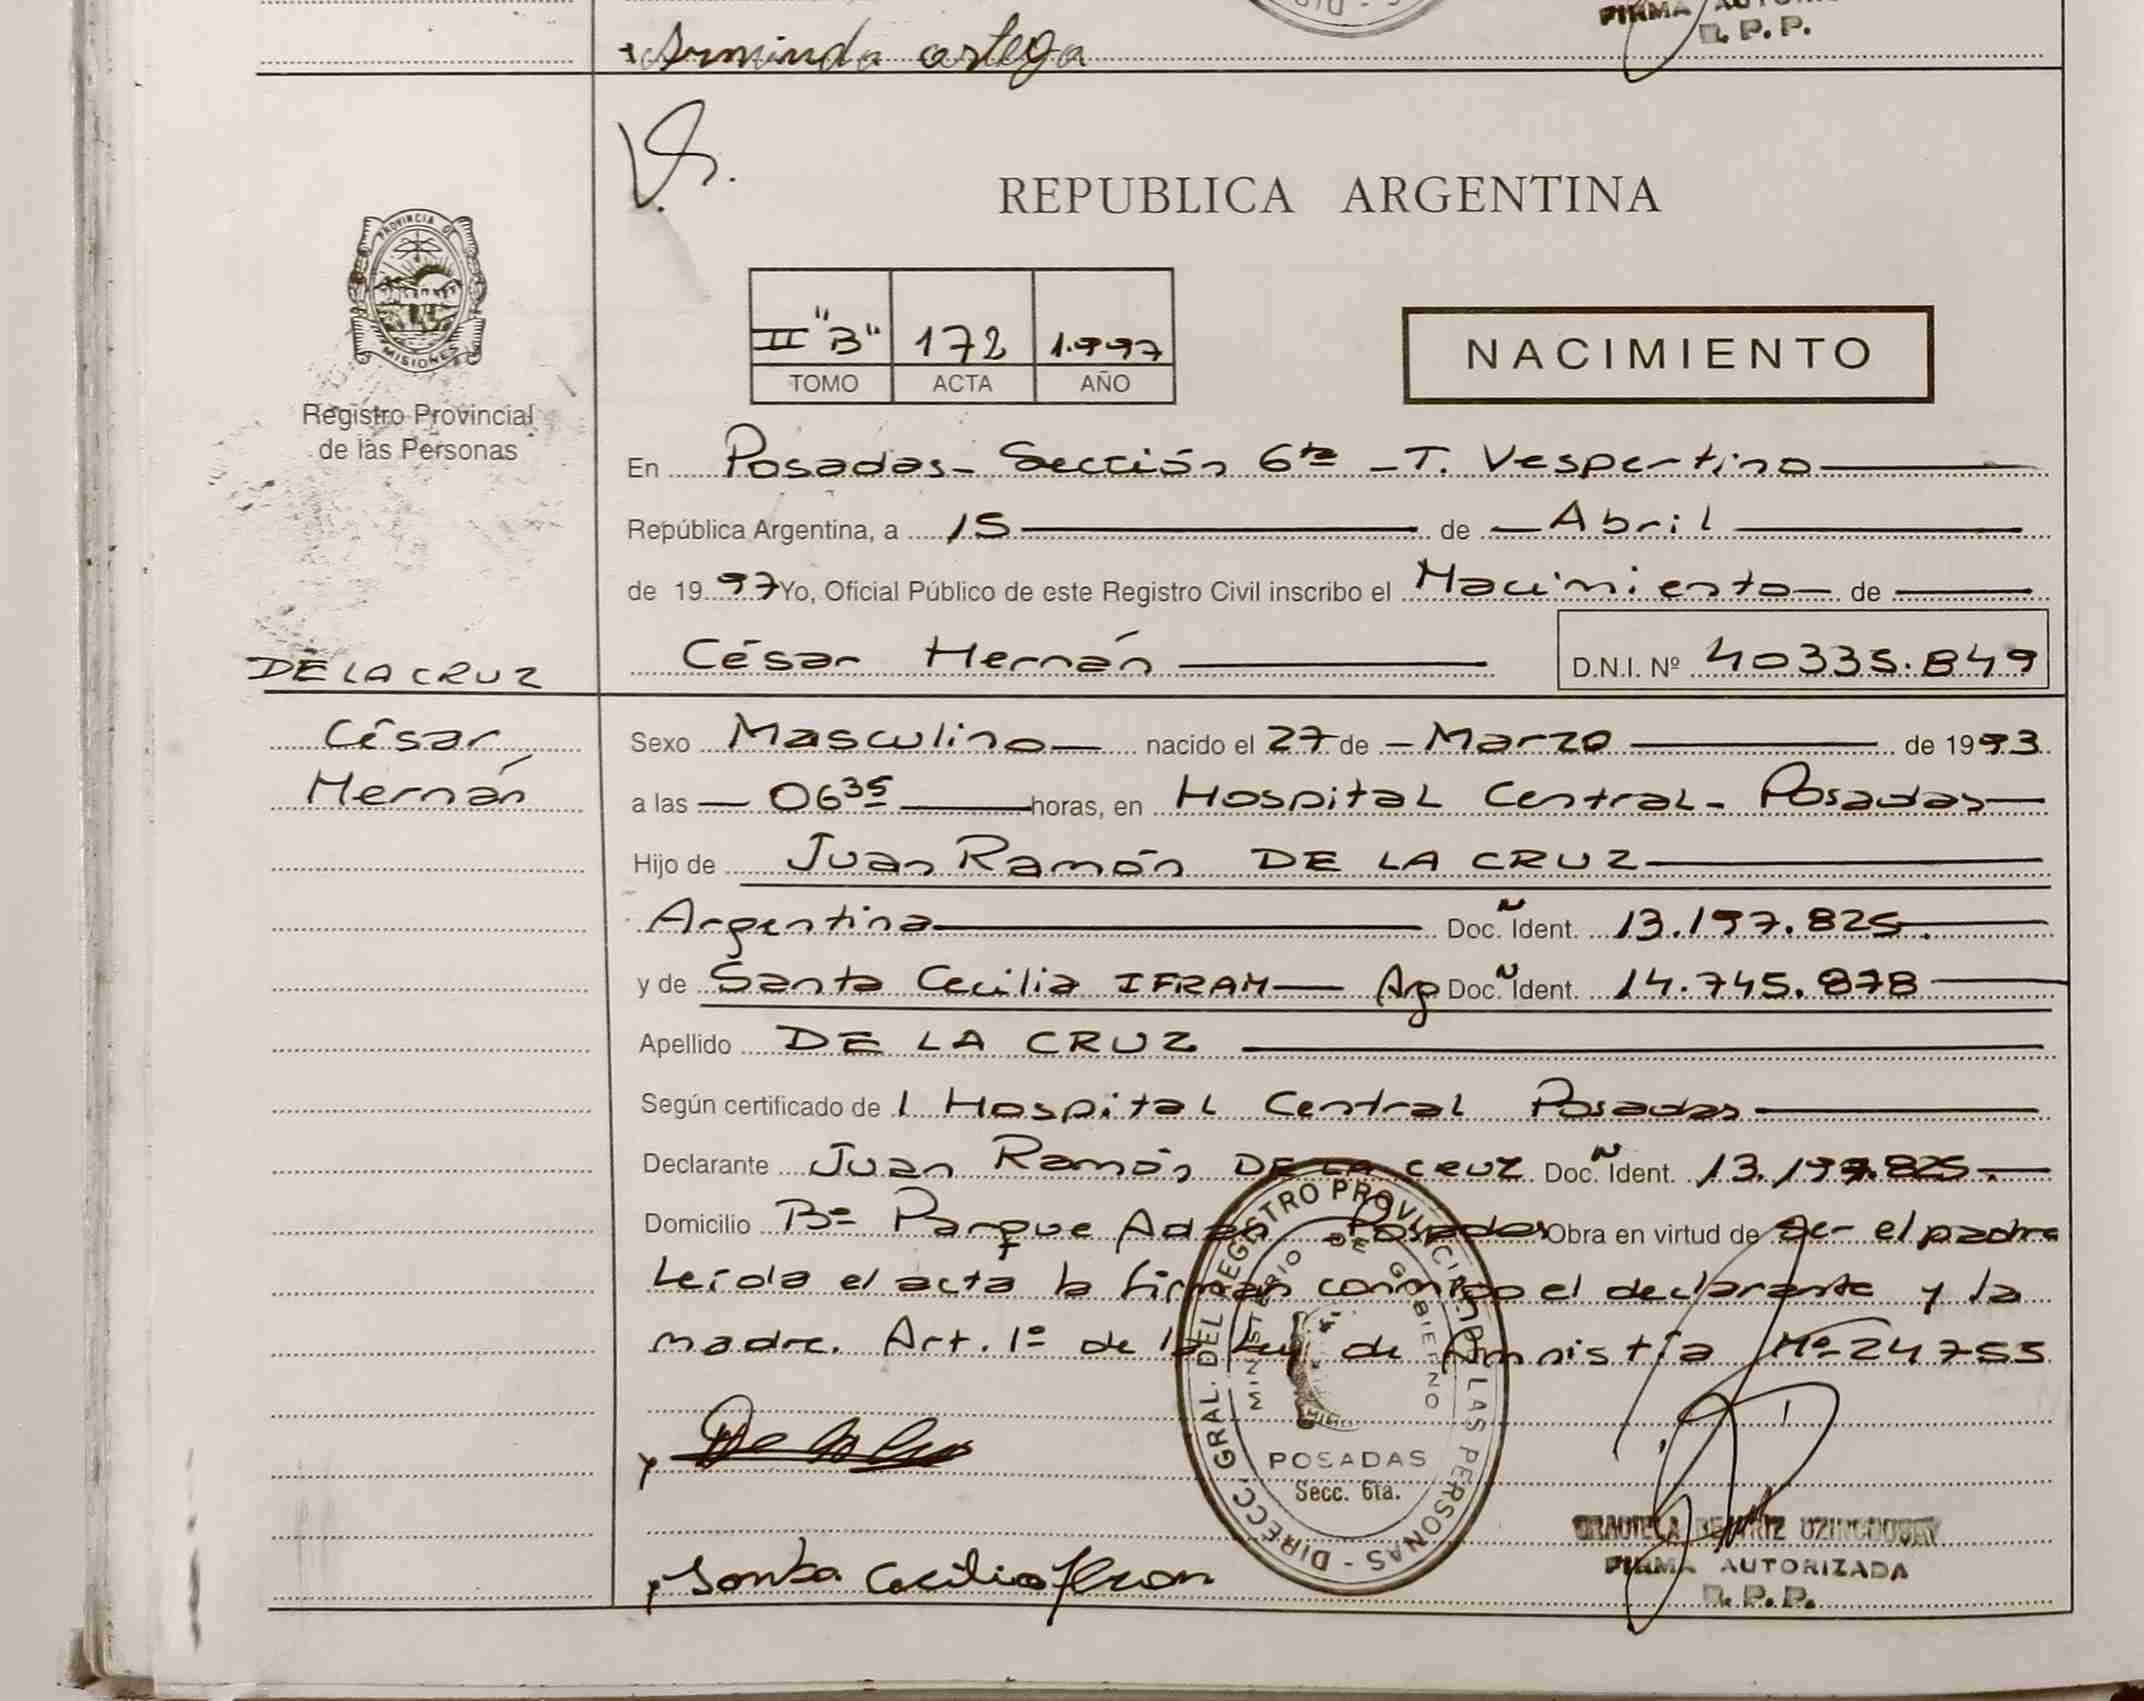 Arminda ortega
FIRMA
R. P. P.
PROVINCIA DE
MISIONES
Registro Provincial
de las Personas
REPUBLICA ARGENTINA
II "B" 172 1.997
TOMO ACTA AÑO
NACIMIENTO
En Posadas- Sección 6ta - T. Vespertino
República Argentina, a 15 de Abril
de 1997 Yo, Oficial Público de este Registro Civil inscribo el Nacimiento de
DE LA CRUZ
César Hernán D.N.I. Nº 40335.849
César
Hernán
Sexo Masculino nacido el 27 de Marzo de 1993
a las 06 35 horas, en Hospital Central- Posadas
Hijo de Juan Ramón DE LA CRUZ
Argentina Doc. Ñ Ident. 13.197.825.
y de Santa Cecilia IFRAM Ag Doc. Ñ Ident. 14.745.878
Apellido DE LA CRUZ
Según certificado de l Hospital Central Posadas
Declarante Juan Ramón DE LA CRUZ Doc. Ñ Ident. 13.197.825.
Domicilio Bº Parque Adan - Posadas Obra en virtud de ser el padre
Leída el acta la firman conmigo el declarante y la
madre. Art. 1º de la Ley de Amnistía Nº 24755
DIRECC. GRAL. DEL REGISTRO PROVINCIAL DE LAS PERSONAS
MINISTERIO DE GOBIERNO
POSADAS
Secc. 6ta.
Santa Cecilia Ifran
BEATRIZ
FIRMA AUTORIZADA
R. P. P.